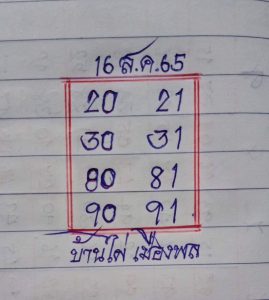 16 ส.ค.65
20 21
30 31
80 81
90 91
บ้านไผ่ เมืองพล